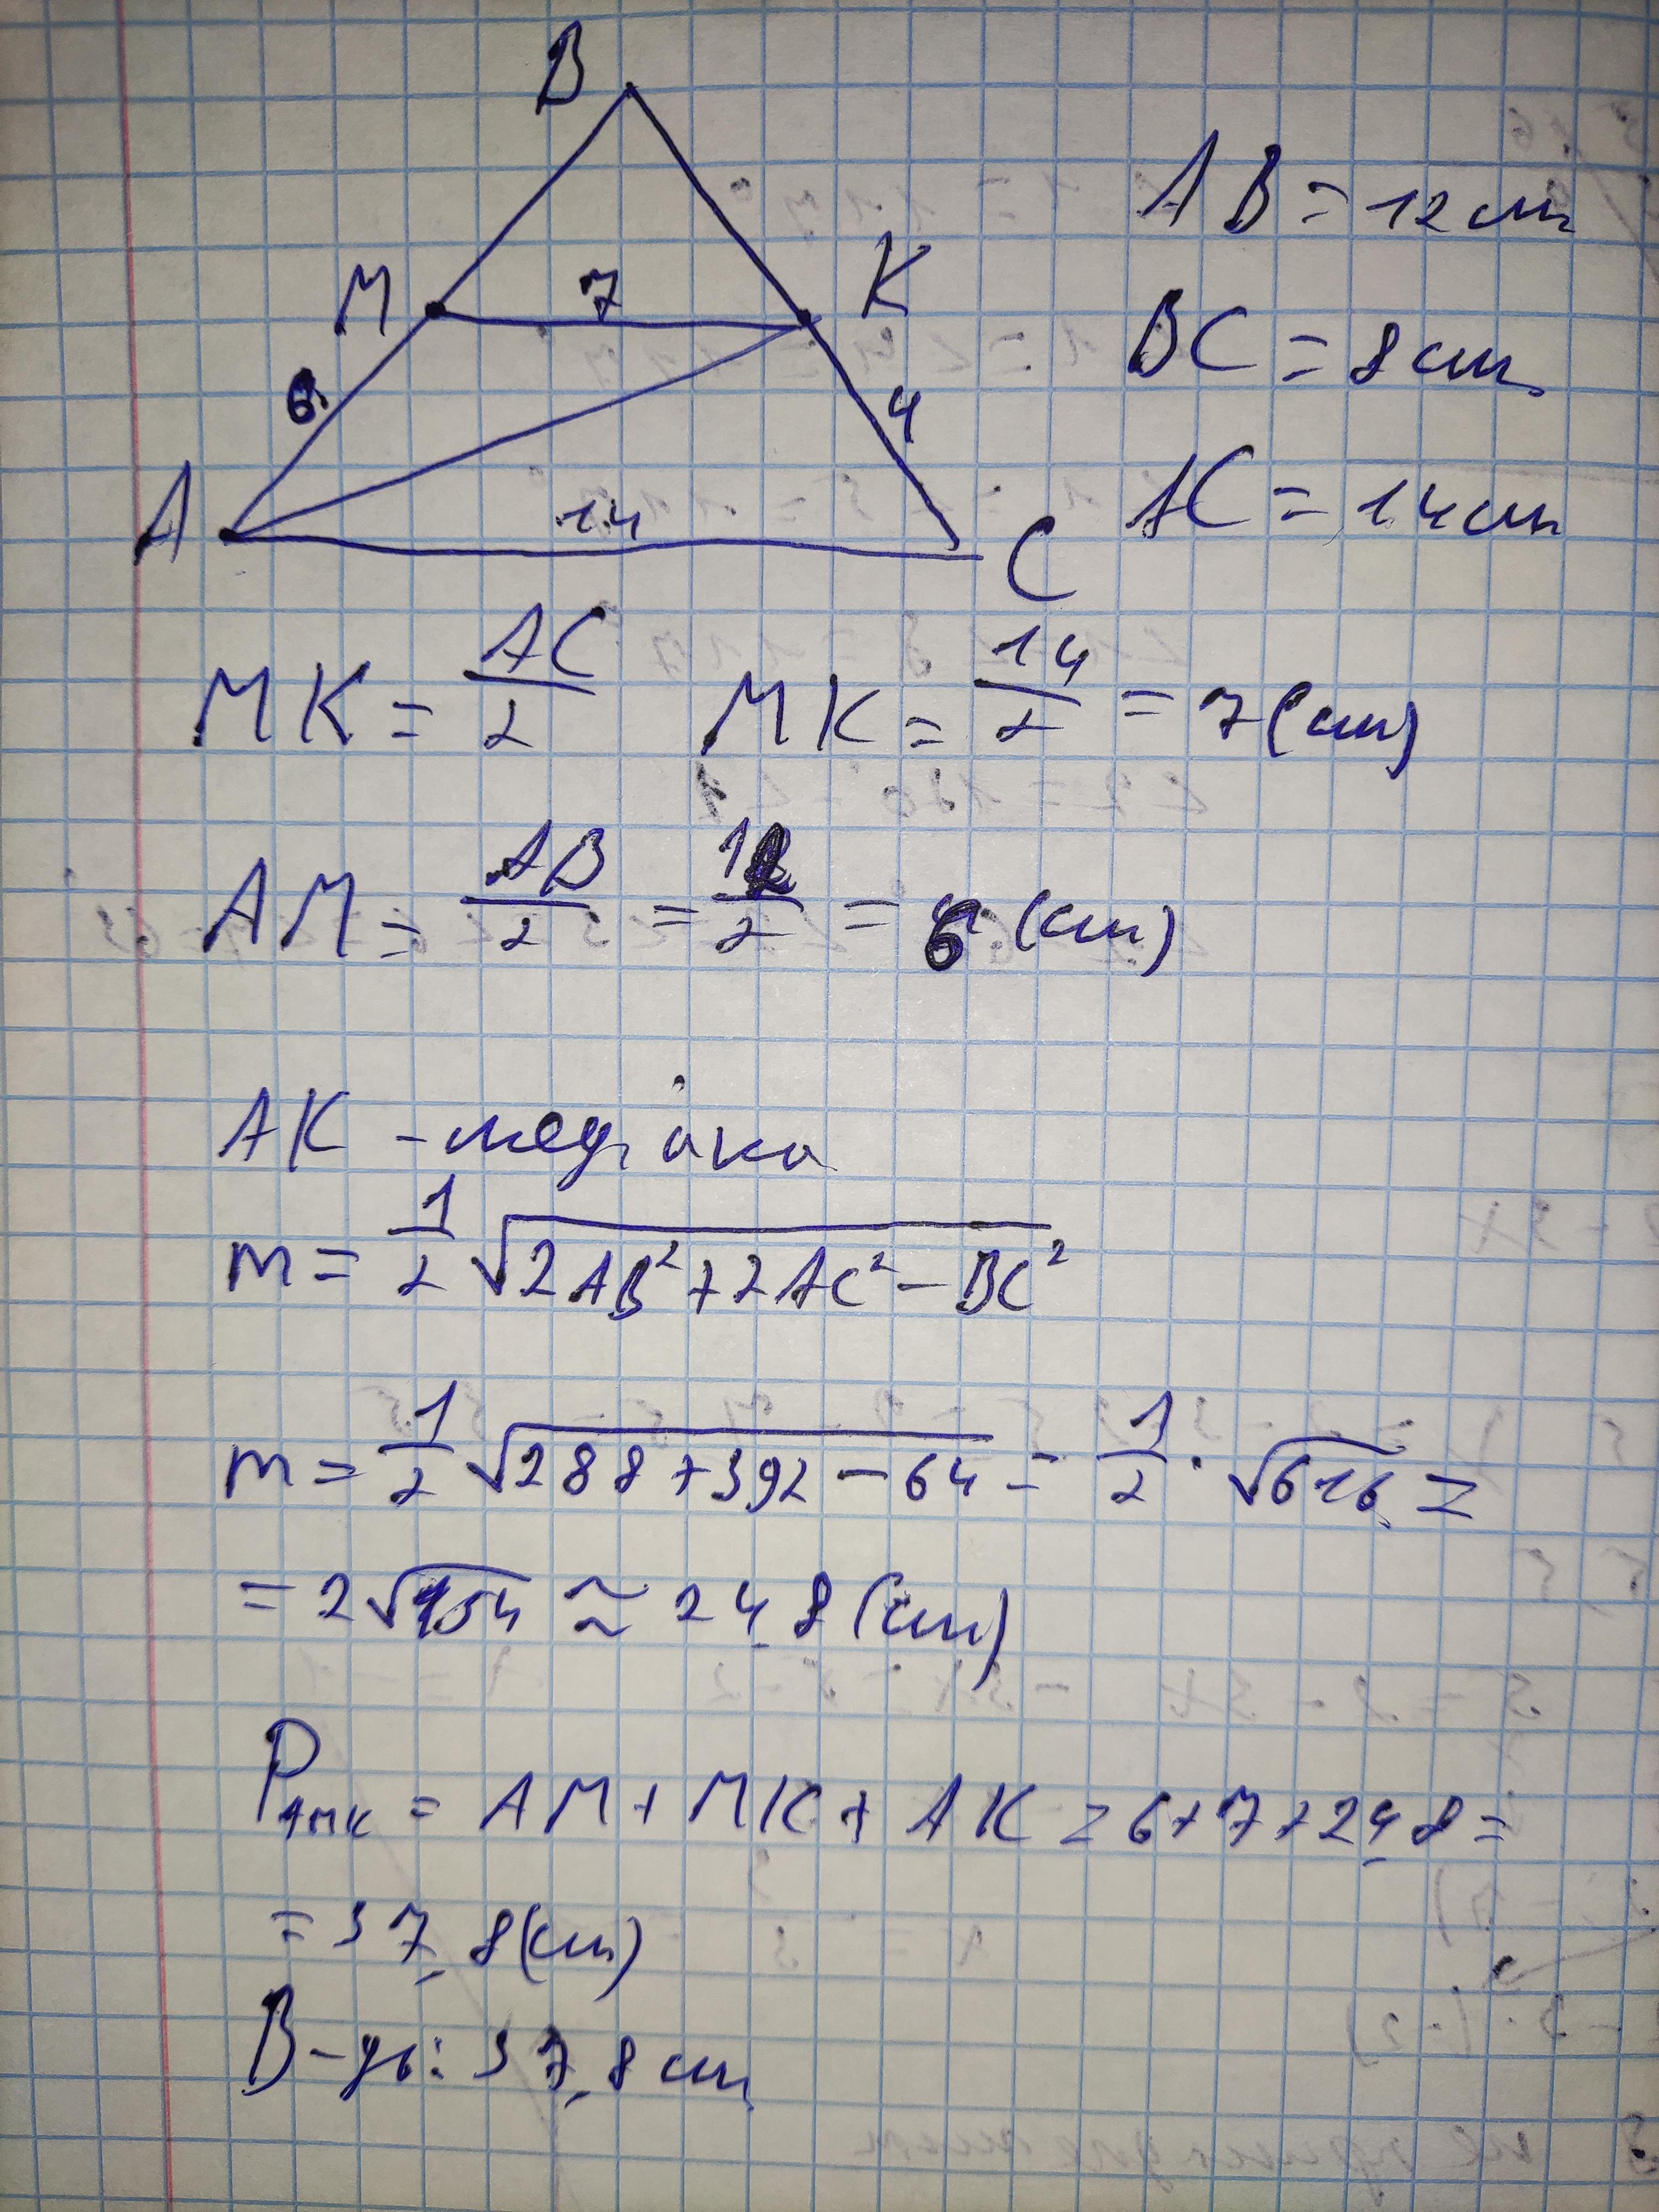 B
AB = 12 см
M 7 K
BC = 8 см
6 4
A 14 C
AC = 14 см
MK = AC/2 MK = 14/2 = 7 (см)
AM = AB/2 = 12/2 = 6 (см)
AK - медіана
m = 1/2 √(2AB² + 2AC² - BC²)
m = 1/2 √(288 + 392 - 64) = 1/2 · √616 =
= 2√154 ≈ 24,8 (см)
P AMK = AM + MK + AK = 6 + 7 + 24,8 =
= 37,8 (см)
В-дь: 37,8 см